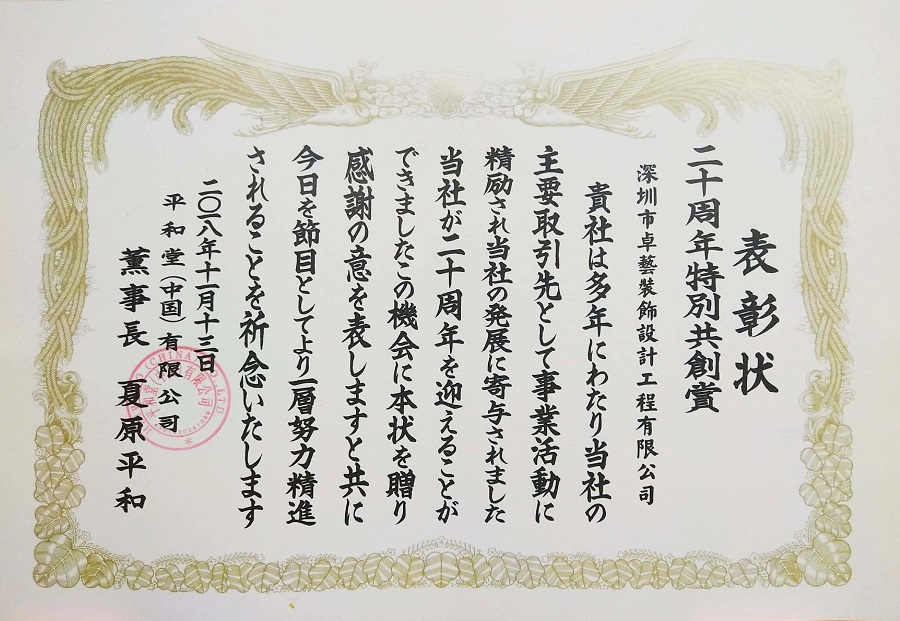 表彰状
二十周年特別共創賞
深圳市卓藝裝飾設計工程有限公司
貴社は多年にわたり当社の
主要取引先として事業活動に
精励され当社の発展に寄与されました
当社が二十周年を迎えることが
できましたこの機会に本状を贈り
感謝の意を表しますと共に
今日を節目としてより一層努力精進
されることを祈念いたします
二〇一八年十一月十三日
平和堂(中国)有限公司
董事長 夏原平和